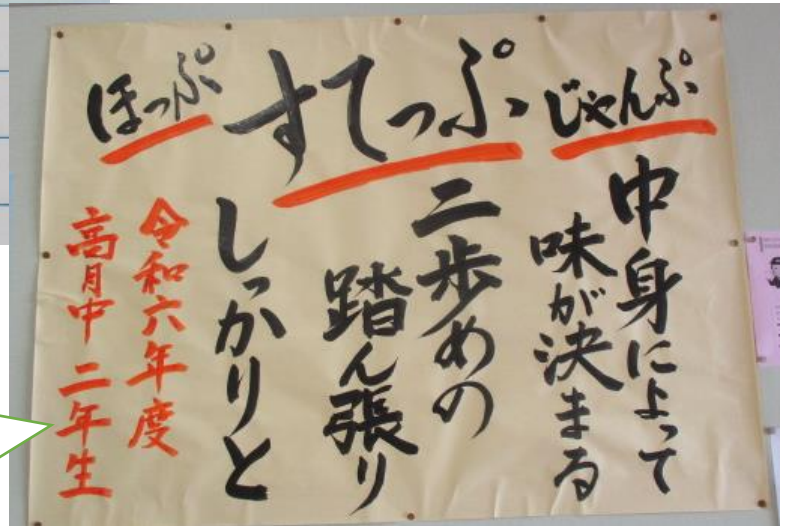 ほっぷ すてっぷ じゃんぷ
中身によって
味が決まる
二歩めの
踏ん張り
しっかりと
令和六年度
高月中 二年生